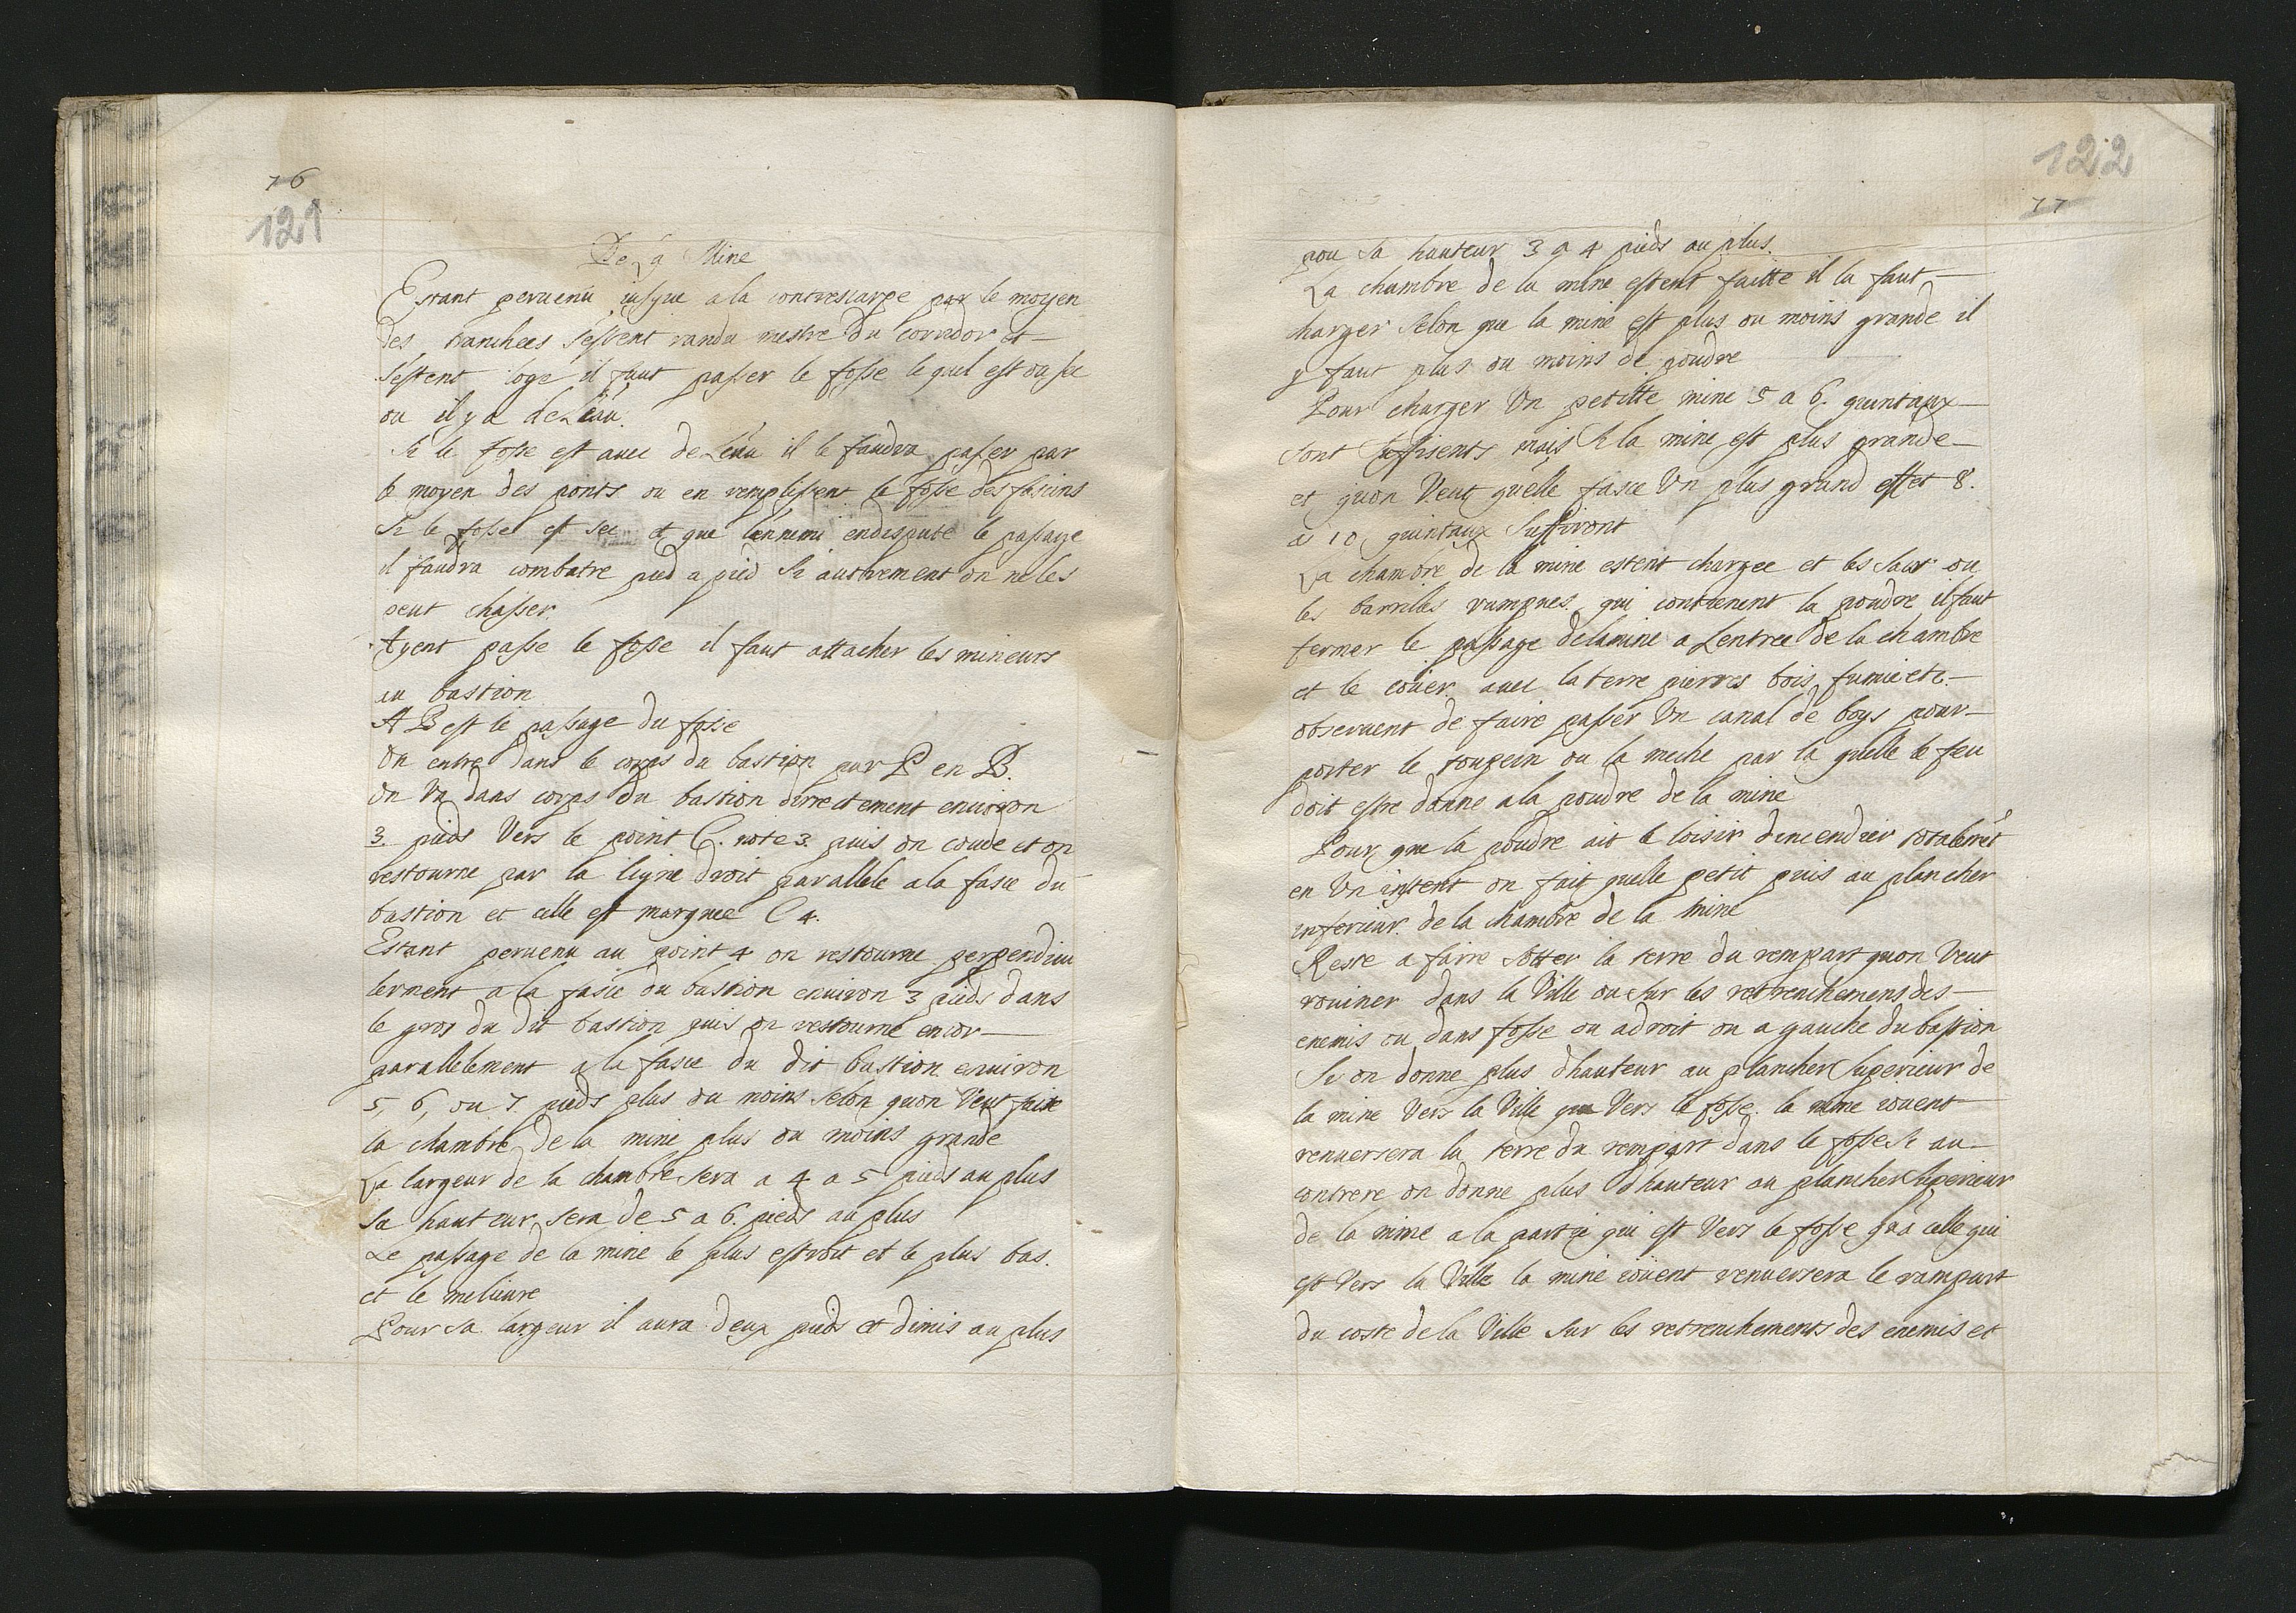 76
121
De La Mine
Estant peruenu iusque a la contrescarpe par le moyen
des tranchees s'estent randu mestre du corridor et
s'estent loge il faut passer le fosse lequel est ou sec
ou il y a de Leau.
Si le fosse est auec de Leau il le faudra passer par
le moyen des ponts ou en remplissent le fosse des fasins
Si le fosse est sec et que lennemi endispute le passage
il faudra combatre pied a pied si autrement on ne les
peut chasser.
Ayent passe le fosse il faut attacher les mineurs
au bastion
A B est le passage du fosse
On entre dans le corps du bastion par P en B.
On Va dans corps du bastion dirrectement enuiron
3. pieds Vers le point C. note 3. puis on coude et on
restourne par la ligne droit parallele a la fasce du
bastion et elle est marquee C 4.
Estant peruenu au point 4 on restourne perpendicu
lerment a la fasce du bastion enuiron 3 pieds dans
le gros du dit bastion puis on restourne encor
parallelement a la fasce du dit bastion enuiron
5, 6, ou 7. pieds plus ou moins selon quon Veut faire
la chambre de la mine plus ou moins grande
La largeur de la chambre sera a 4 a 5 pieds au plus
sa hauteur sera de 5 a 6. pieds au plus
Le passage de la mine le plus estroit et le plus bas.
et le melieure
Pour sa largeur il aura deux pieds et dimis au plus
122
77
pou sa hauteur 3 a 4 pieds au plus.
La chambre de la mine estent faitte il la faut
charger selon que la mine est plus ou moins grande il
y faut plus ou moins de poudre
Pour charger Un petitte mine 5 a 6. quintaux
sont suffisents mais si la mine est plus grande
et quon Veut quelle fasce Un plus grand effet 8.
a 10 quintaux suffiront
La chambre de la mine estent chargee et les sacs ou
les barriles rampnes qui contienent la poudre il faut
fermer le passage de la mine a Lentree de la chambre
et le couer auec la terre pierres bois fumie etc.
obseruent de faire passer Un canal de boys pour
porter le soupein ou la meche par la quelle le feu
doit estre donne a la poudre de la mine
Pour que la poudre ait le loisir d'incendier totalem̃et
en Un instent on fait quelle petit puis au plancher
inferieur de la chambre de la mine
Reste a faire sotter la terre du rempart quon Veut
rouiner dans la Ville ou sur les retrenchemens des
enemis ou dans fosse ou adroit ou a gauche du bastion
Si on donne plus d'hauteur au plancher Superieur de
la mine Vers la Ville que Vers le fosse. la mine iouent
renuersera la terre du rempart dans le fosse Si au
contrere on donne plus d'hauteur au plancher superieur
de la mine a la partie qui est Vers le fosse qu'a celle qui
est Vers la Ville la mine iouent renuersera le rampart
du coste de la Ville sur les retrenchements des enemis et